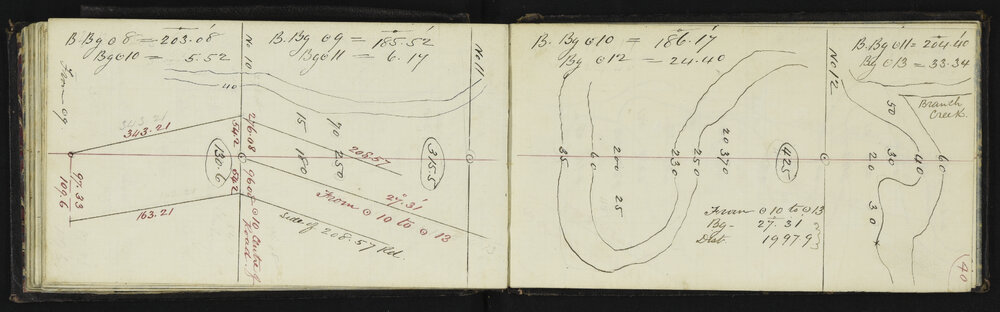 B. Bg ⊙ 8 = 203.08'
Bg ⊙ 10 = 5.52
No 10
B. Bg ⊙ 9 = 185.52'
Bg ⊙ 11 = 6.17
No 11
40
From ⊙ 9
343.21
343.21
97.33
109.6
163.21
1306
276.08
96.08
⊙ 10 Centre of
Road.
15
180
70
250
208.57
3155
27.31'
From ⊙ 10 to ⊙ 13
Side of 208.57 Rd.
B. Bg ⊙ 10 = 186.17'
Bg ⊙ 12 = 24.40
No 12
B. Bg ⊙ 11 = 204.40
Bg ⊙ 13 = 33.34
Branch
Creek.
35
60
200
25
230
250
20 370
425
From ⊙ 10 to ⊙ 13
Bg - 27.31
Dist. 19979
50
30
20
40
60
30
40